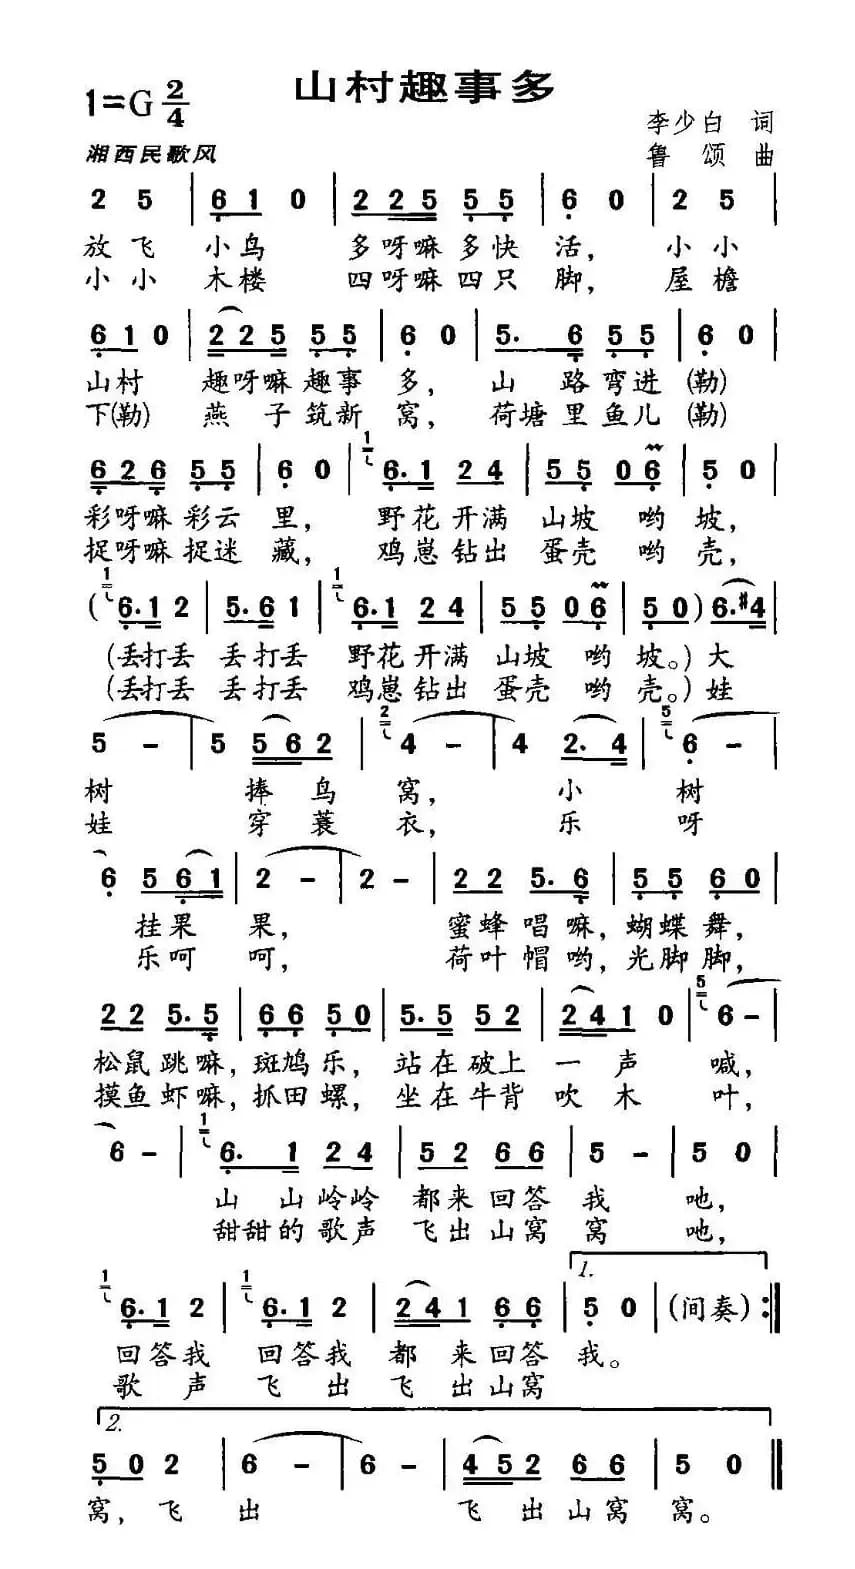 山村趣事多
1=G 2/4
李少白 词
湘西民歌风
鲁 颂 曲
2 5 | 6 1 0 | 2 2 5 5 5 | 6 0 | 2 5 |
放飞 小鸟 多呀嘛多快 活, 小小
小小 木楼 四呀嘛四只 脚, 屋檐
6 1 0 | 2 2 5 5 5 | 6 0 | 5. 6 5 5 | 6 0 |
山村 趣呀嘛趣事 多, 山 路弯进 (勒)
下(勒) 燕 子筑新 窝, 荷塘里鱼儿 (勒)
6 2 6 5 5 | 6 0 | 1 6. 1 2 4 | 5 5 0 6 | 5 0 |
彩呀嘛彩云 里, 野花开满 山坡 哟 坡,
捉呀嘛捉迷 藏, 鸡崽钻出 蛋壳 哟 壳,
( 1 6. 1 2 | 5. 6 1 | 1 6. 1 2 4 | 5 5 0 6 | 5 0 ) 6. #4 |
(丢打丢 丢打丢 野花开满 山坡 哟 坡。) 大
(丢打丢 丢打丢 鸡崽钻出 蛋壳 哟 壳。) 娃
5 - | 5 5 6 2 | 2 4 - | 4 2. 4 | 5 6 - |
树 捧鸟 窝, 小 树
娃 穿蓑 衣, 乐 呀
6 5 6 1 | 2 - | 2 - | 2 2 5. 6 | 5 5 6 0 |
挂果 果, 蜜蜂唱嘛, 蝴蝶舞,
乐呵 呵, 荷叶帽哟, 光脚脚,
2 2 5. 5 | 6 6 5 0 | 5. 5 5 2 | 2 4 1 0 | 5 6 - |
松鼠跳嘛, 斑鸠乐, 站在破上 一声 喊,
摸鱼虾嘛, 抓田螺, 坐在牛背 吹木 叶,
6 - | 1 6. 1 2 4 | 5 2 6 6 | 5 - | 5 0 |
山山岭岭 都来回答 我 吔,
甜甜的歌声 飞出山窝 窝 吔,
1.
1 6. 1 2 | 1 6. 1 2 | 2 4 1 6 6 | 5 0 | (间奏) :‖
回答我 回答我 都来回答 我。
歌声 飞出 飞出山窝
2.
5 0 2 | 6 - | 6 - | 4 5 2 6 6 | 5 0 ‖
窝, 飞 出 飞出山窝 窝。